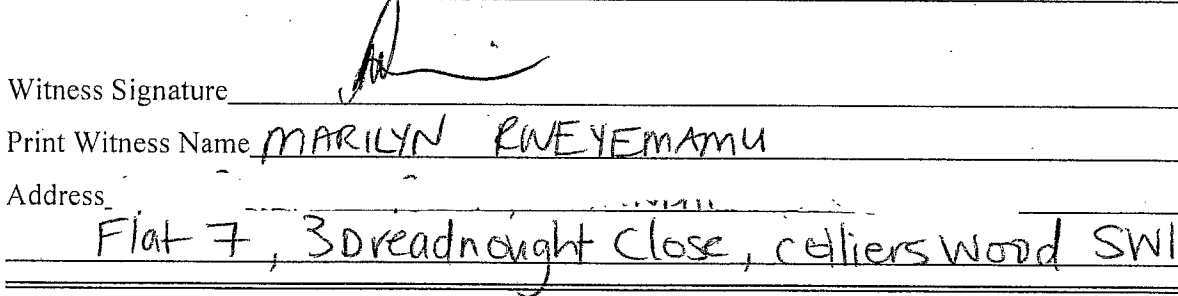 Witness Signature
Print Witness Name MARILYN RWEYEMAMU
Address
Flat 7, 3 Dreadnought Close, colliers Wood SW1